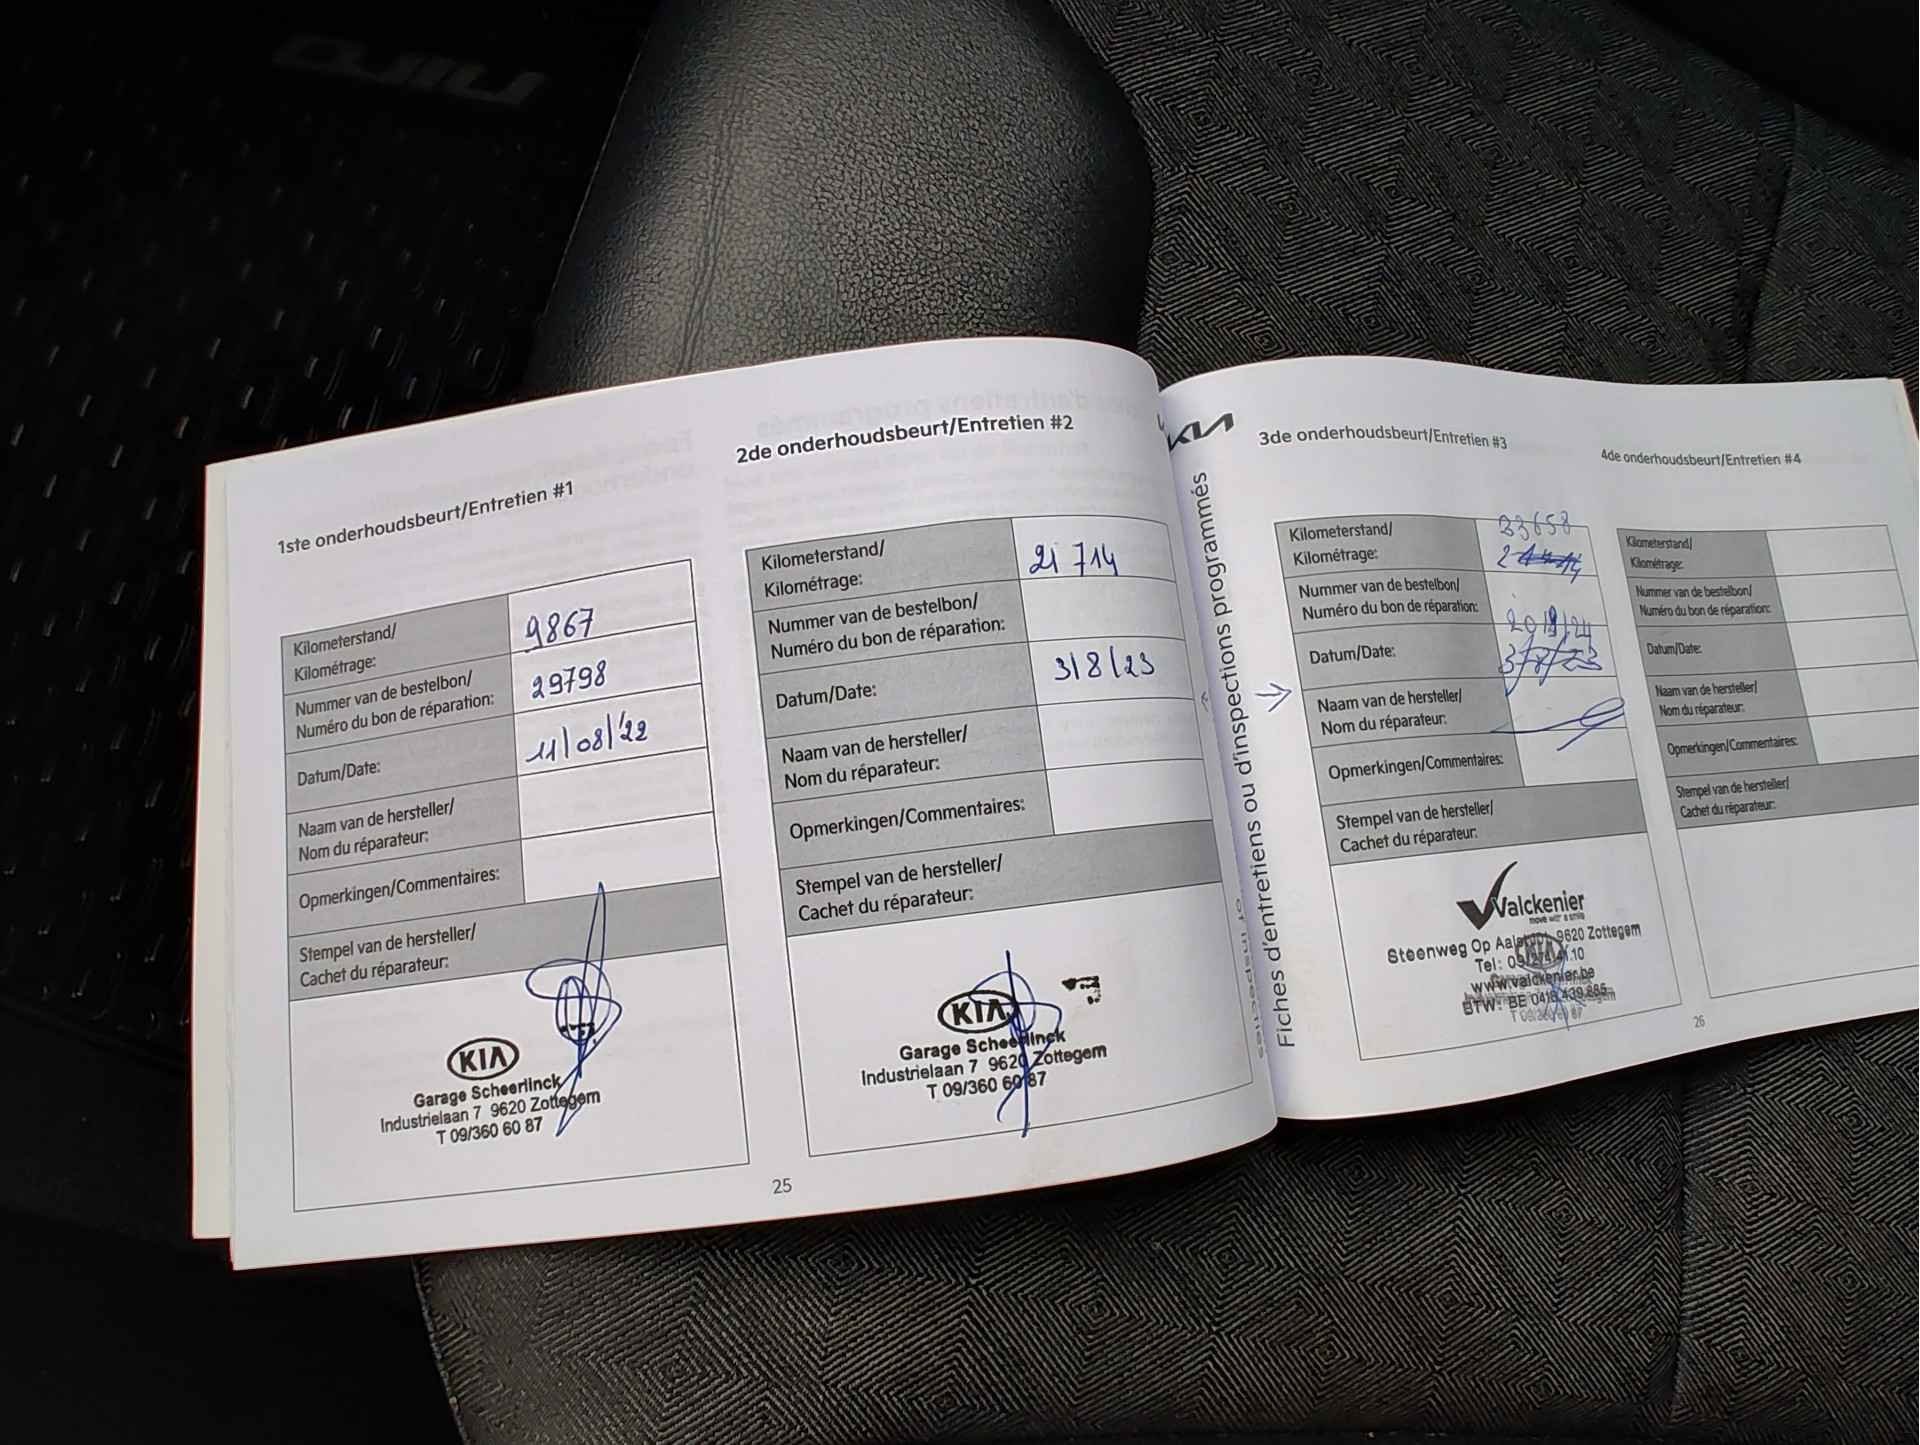 NIRO
1ste onderhoudsbeurt/Entretien #1
Kilometerstand/
Kilométrage:
9867
Nummer van de bestelbon/
Numéro du bon de réparation:
29798
Datum/Date:
11/08/'22
Naam van de hersteller/
Nom du réparateur:
Opmerkingen/Commentaires:
Stempel van de hersteller/
Cachet du réparateur:
KIA
Garage Scheerlinck
Industrielaan 7 9620 Zottegem
T 09/360 60 87
2de onderhoudsbeurt/Entretien #2
Kilometerstand/
Kilométrage:
21 714
Nummer van de bestelbon/
Numéro du bon de réparation:
Datum/Date:
3/8/23
Naam van de hersteller/
Nom du réparateur:
Opmerkingen/Commentaires:
Stempel van de hersteller/
Cachet du réparateur:
KIA
Garage Scheerlinck
Industrielaan 7 9620 Zottegem
T 09/360 60 87
25
KIA
Fiches d'entretiens ou d'inspections programmés
3de onderhoudsbeurt/Entretien #3
Kilometerstand/
Kilométrage:
33658
Nummer van de bestelbon/
Numéro du bon de réparation:
Datum/Date:
3/8/23
Naam van de hersteller/
Nom du réparateur:
Opmerkingen/Commentaires:
Stempel van de hersteller/
Cachet du réparateur:
Valckenier
move with a smile
Steenweg Op Aalst 9620 Zottegem
Tel: 09/274.41.10
www.valckenier.be
BTW: BE 0418.439.885
KIA
T 09/360 60 87
4de onderhoudsbeurt/Entretien #4
Kilometerstand/
Kilométrage:
Nummer van de bestelbon/
Numéro du bon de réparation:
Datum/Date:
Naam van de hersteller/
Nom du réparateur:
Opmerkingen/Commentaires:
Stempel van de hersteller/
Cachet du réparateur:
26